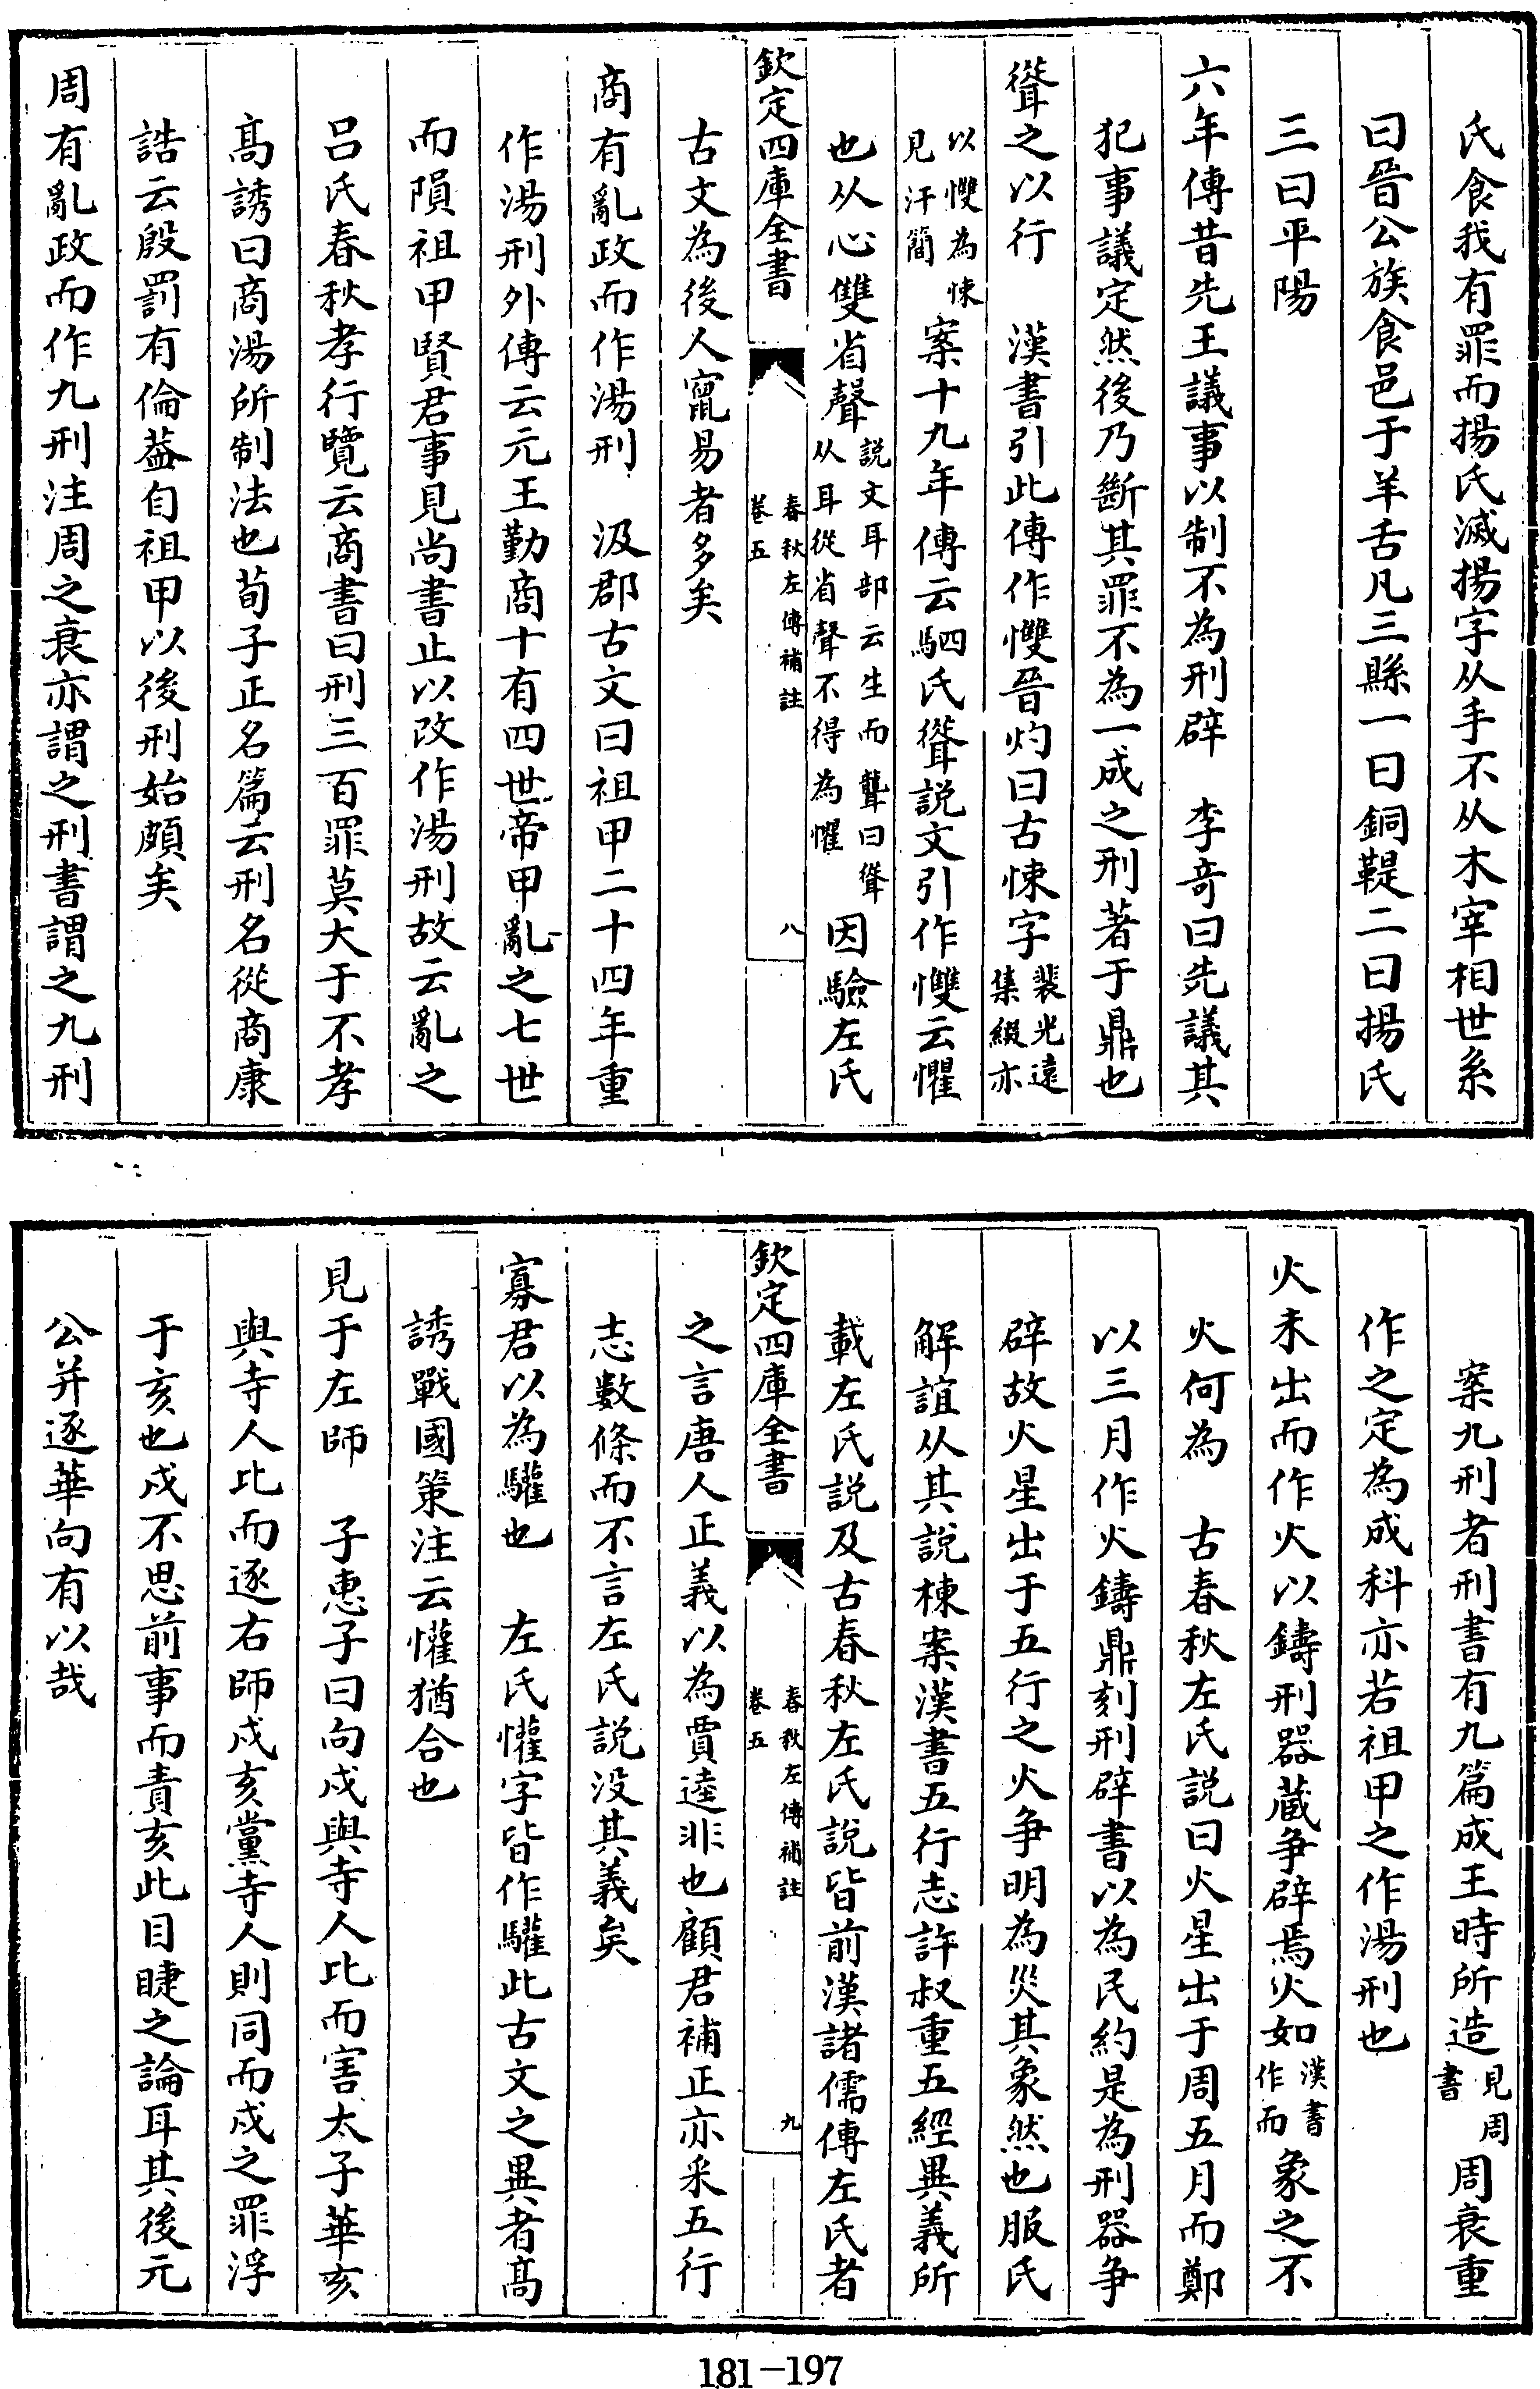 氏食我有罪而揚氏滅揚字从手不从木宰相世系
曰晉公族食邑于羊舌凡三縣一曰銅鞮二曰揚氏
三曰平陽
六年傳昔先王議事以制不為刑辟　李竒曰先議其
犯事議定然後乃斷其罪不為一成之刑著于鼎也
聳之以行　漢書引此傳作㦼晉灼曰古悚字裴光遠集綴亦
以㦼為悚見汗簡案十九年傳云駟氏聳説文引作㦼云懼
也从心雙省聲説文耳部云生而聾曰聳从耳從省聲不得為懼因驗左氏
欽定四庫全書　春秋左傳補註卷五　八
古文為後人竄易者多矣
商有亂政而作湯刑　汲郡古文曰祖甲二十四年重
作湯刑外傳云元王勤商十有四世帝甲亂之七世
而隕祖甲賢君事見尚書止以改作湯刑故云亂之
呂氏春秋孝行覽云商書曰刑三百罪莫大于不孝
髙誘曰商湯所制法也荀子正名篇云刑名從商康
誥云殷罰有倫葢自祖甲以後刑始頗矣
周有亂政而作九刑注周之衰亦謂之刑書謂之九刑
案九刑者刑書有九篇成王時所造見周書周衰重
作之定為成科亦若祖甲之作湯刑也
火未出而作火以鑄刑器蔵争辟焉火如漢書作而象之不
火何為　古春秋左氏説曰火星出于周五月而鄭
以三月作火鑄鼎刻刑辟書以為民約是為刑器争
辟故火星出于五行之火争明為災其象然也服氏
解誼从其說棟案漢書五行志許叔重五經異義所
載左氏説及古春秋左氏說皆前漢諸儒傳左氏者
欽定四庫全書　春秋左傳補註卷五　九
之言唐人正義以為賈逵非也顧君補正亦采五行
志數條而不言左氏説没其義矣
寡君以為驩也　左氏懽字皆作驩此古文之異者髙
誘戰國策注云懽猶合也
見于左師　子惠子曰向戍與寺人比而害太子華亥
與寺人比而逐右師戍亥黨寺人則同而戍之罪浮
于亥也戍不思前事而責亥此目睫之論耳其後元
公并逐華向有以哉
181-197